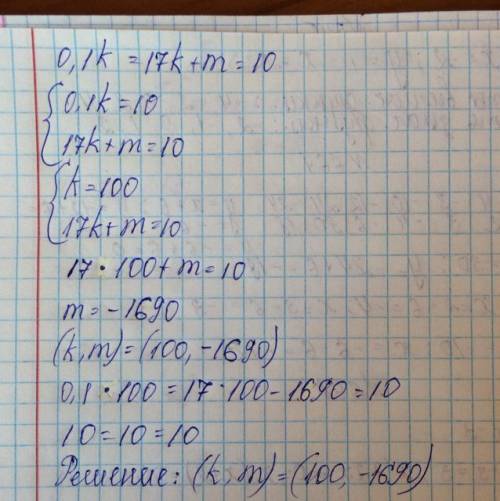 0,1k = 17k + m = 10
0,1k = 10
17k + m = 10
k = 100
17k + m = 10
17 · 100 + m = 10
m = -1690
(k, m) = (100, -1690)
0,1 · 100 = 17 · 100 - 1690 = 10
10 = 10 = 10
Решение: (k, m) = (100, -1690)